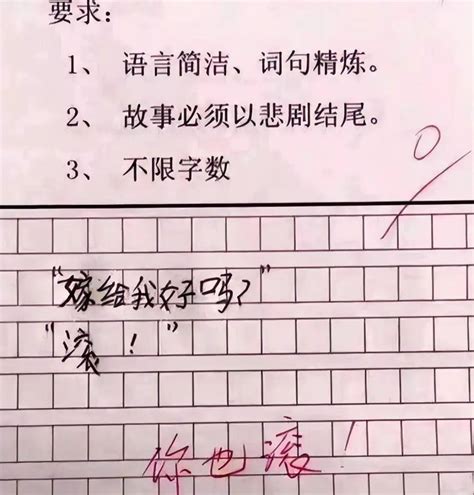 要求:
1、 语言简洁、词句精炼。
2、 故事必须以悲剧结尾。
3、 不限字数
0
“嫁给我好吗?”
“滚！”
你也滚！